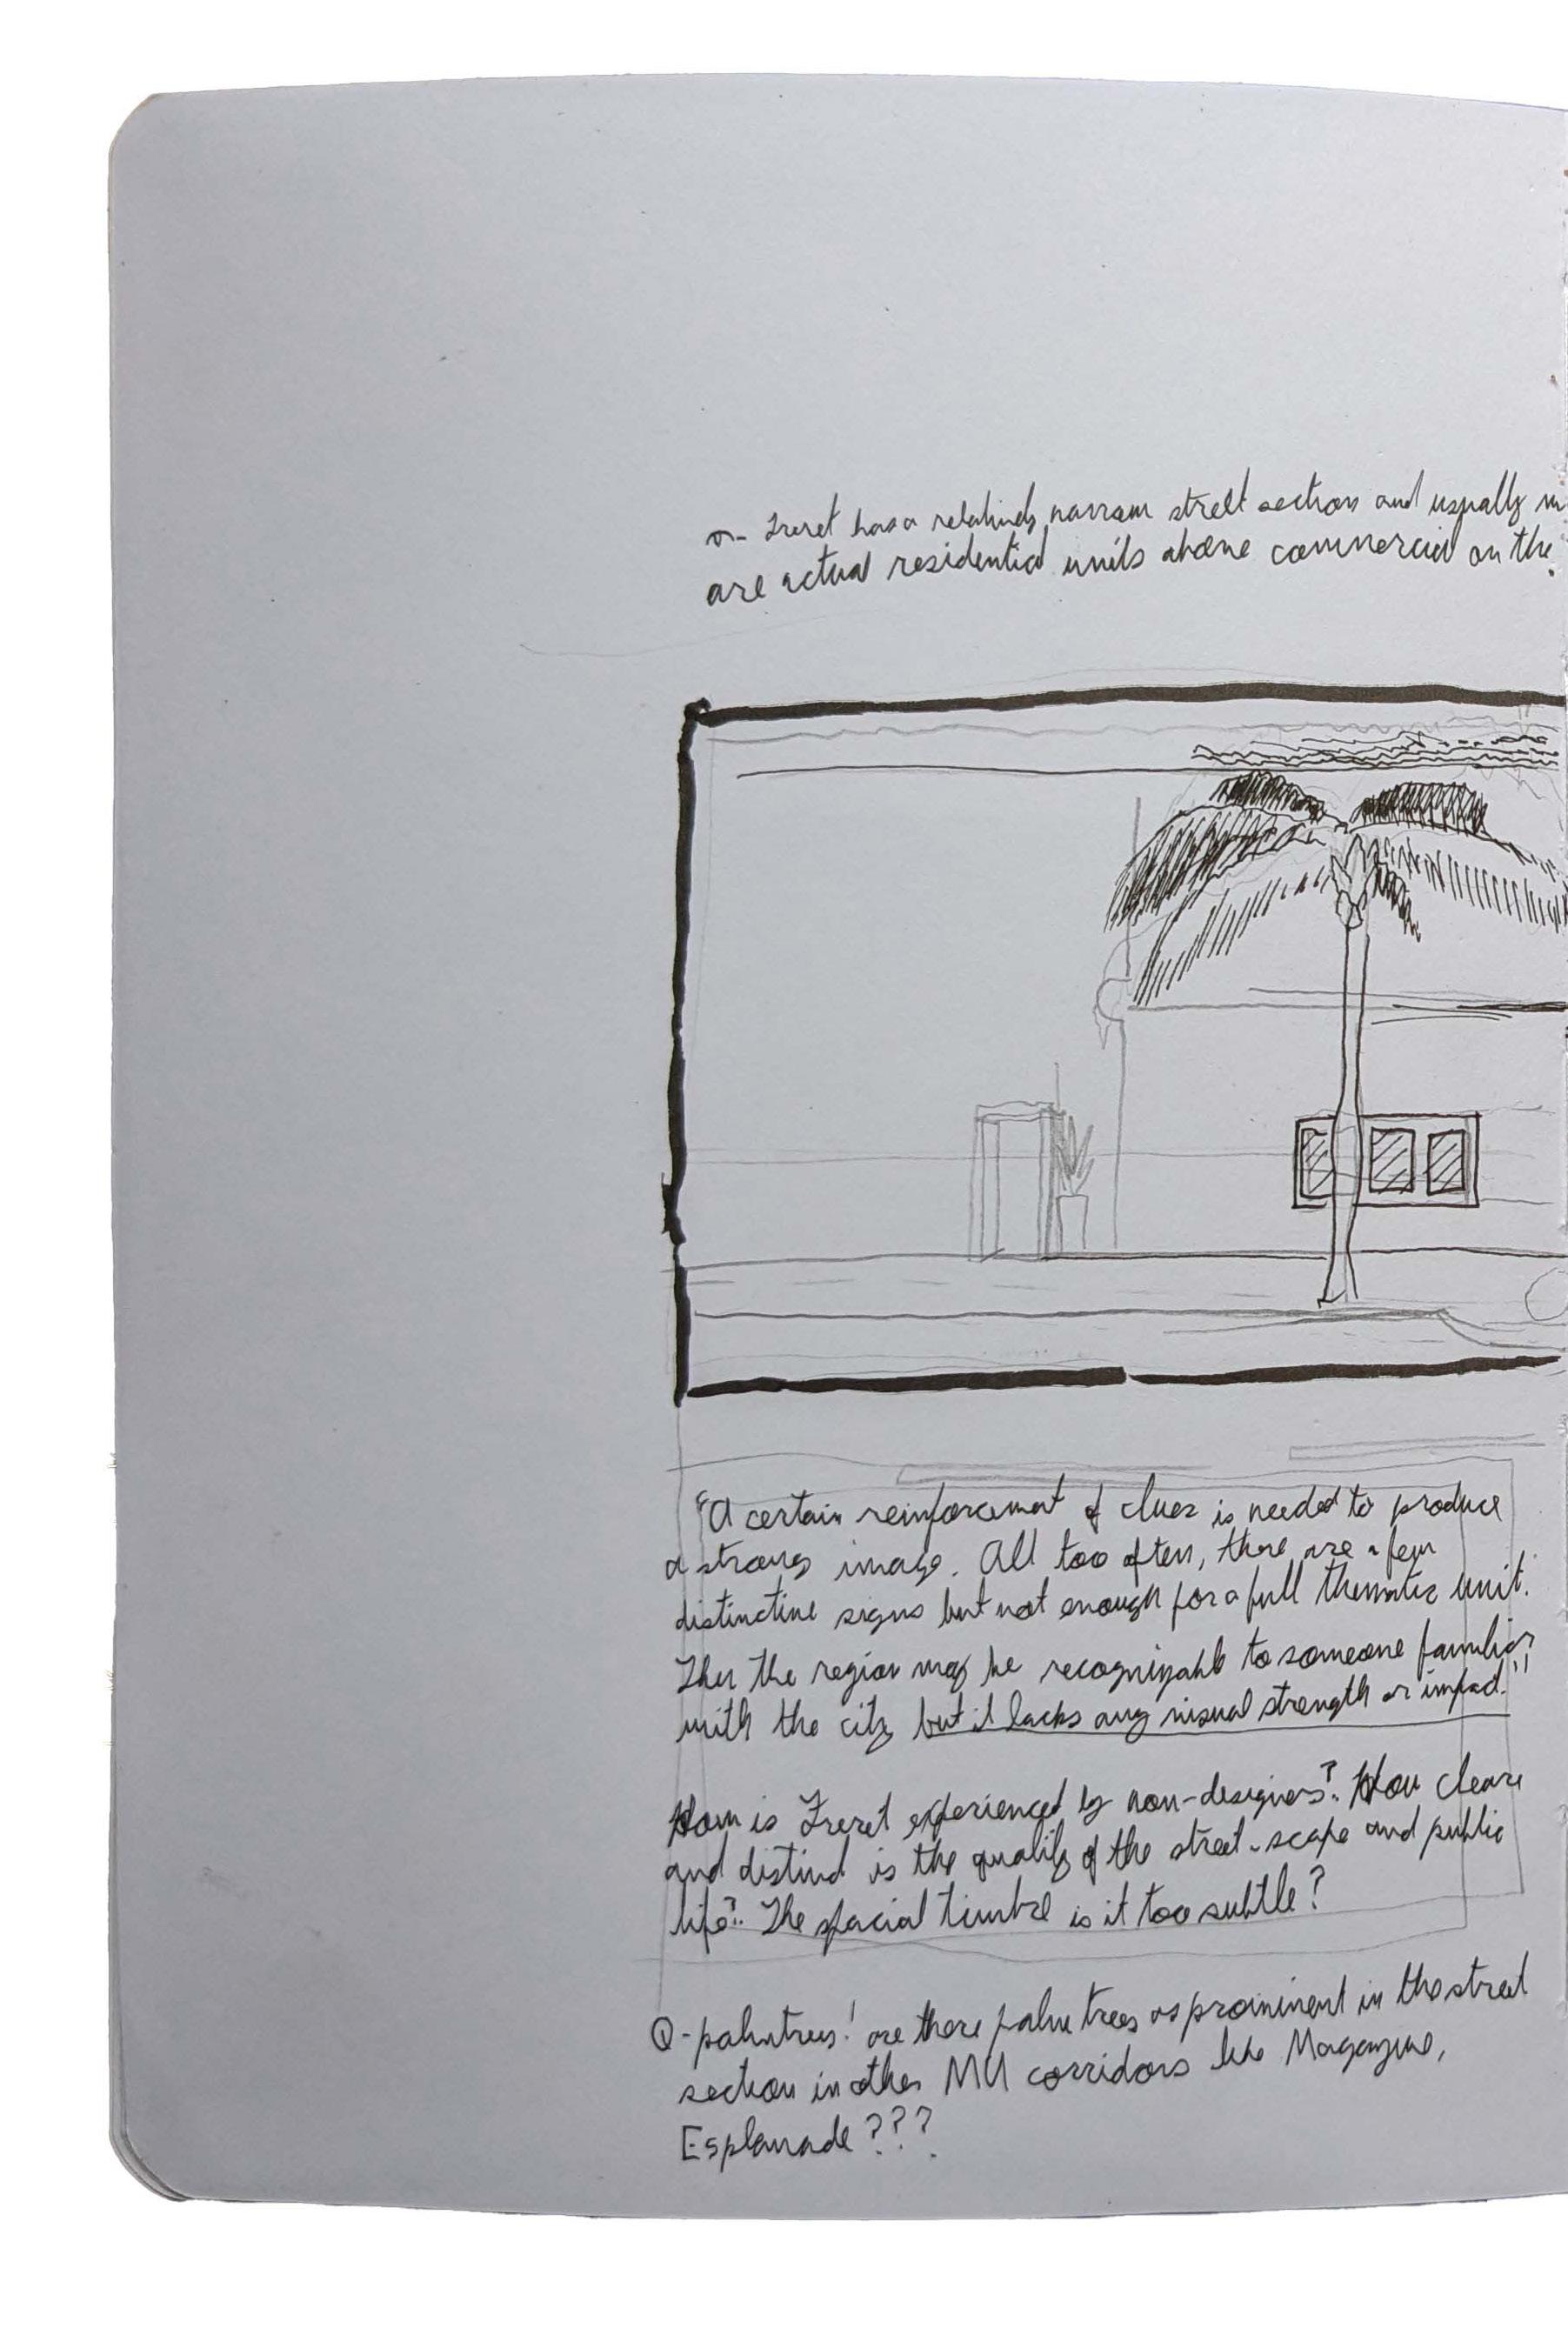 - Freret has a relatively narrow street section and usually
are actual residential units above commercial on the
"A certain reinforcement of clues is needed to produce
a strong image. All too often, there are a few
distinctive signs but not enough for a full thematic unit.
Then the region may be recognizable to someone familiar
with the city but it lacks any visual strength or impact."
How is Freret experienced by non-designers? How clear
and distinct is the quality of the street-scape and public
life? The spacial timbre is it too subtle?
Q-palmtrees! are there palm trees as prominent in the street
section in other MU corridors like Magazine,
Esplanade???